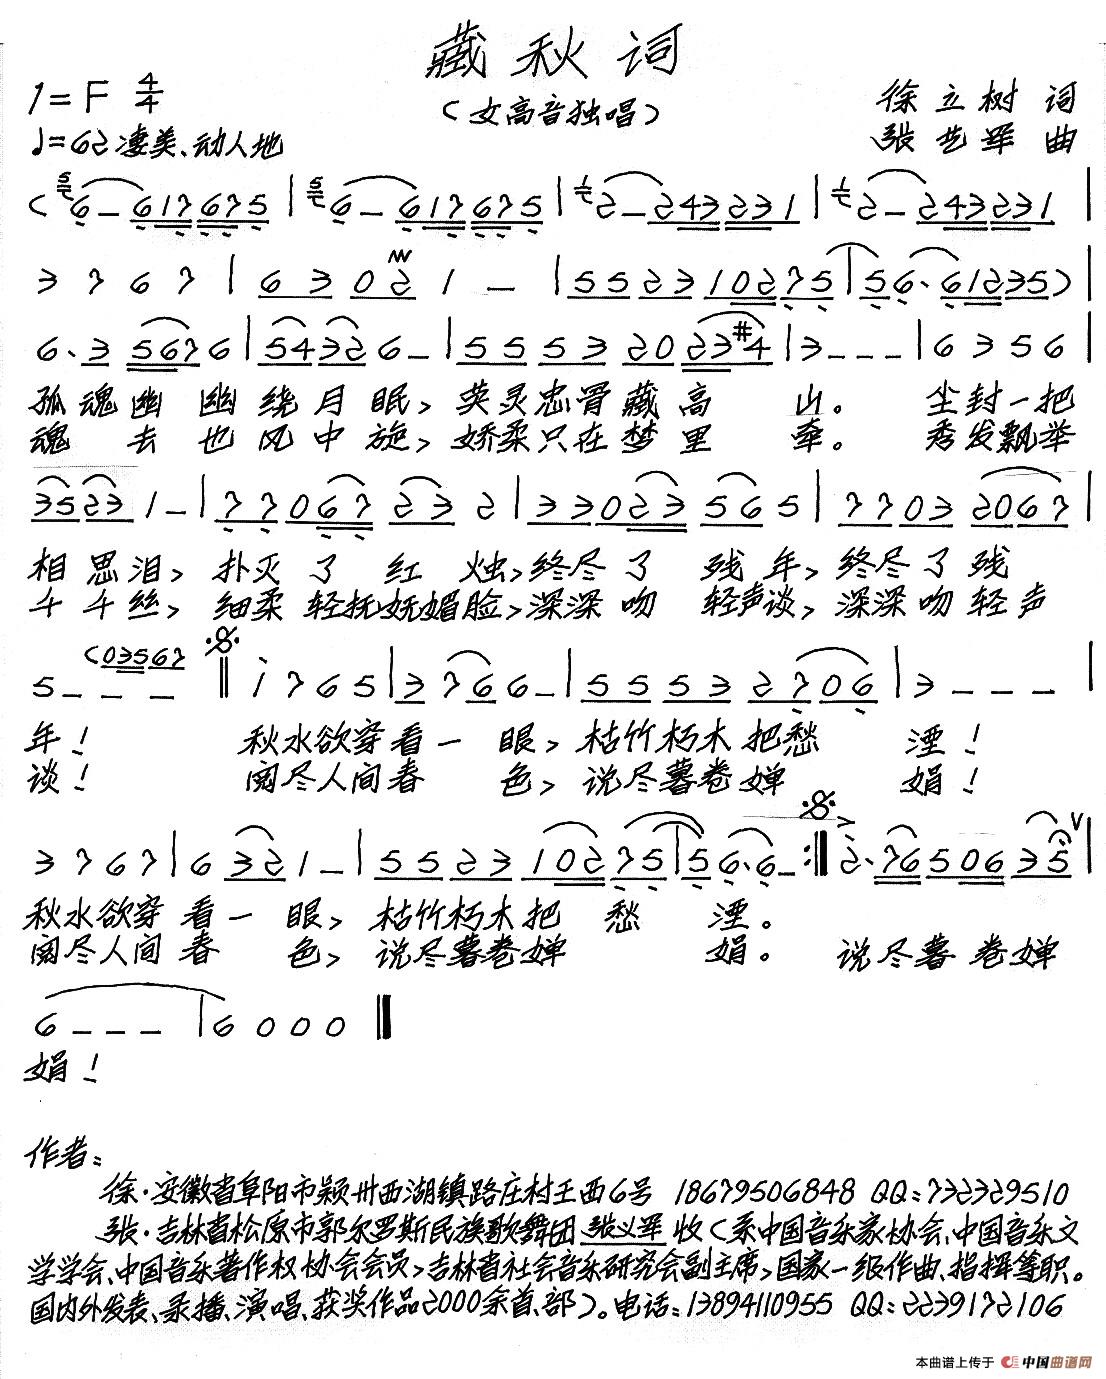 藏秋词
1=F 4/4
(女高音独唱)
徐立树 词
♩=62 凄美、动人地
张艺军 曲
(6-617675|6-617675|2-243231|2-243231|
3767|6302 1-|552310275|56·61235)|
6·35676|54326-|55532023#4|3---|6356|
孤魂幽幽绕月眠,英灵忠骨藏高山。尘封一把
魂去也风中旋,娇柔只在梦里牵。秀发飘举
35231-|77067232|33023565|77032067|
相思泪,扑灭了红烛,终尽了残年,终尽了残
千千丝,细柔轻抚妩媚脸,深深吻轻声谈,深深吻轻声
(03567
5---‖i765|3766-|55532706|3---|
年!秋水欲穿看一眼,枯竹朽木把愁湮!
谈!阅尽人间春色,说尽暮卷婵娟!
3767|6321-|552310275|56·6-:‖2·7650635|
秋水欲穿看一眼,枯竹朽木把愁湮。
阅尽人间春色,说尽暮卷婵娟。说尽暮卷婵
6---|6000‖
娟!
作者:
徐·安徽省阜阳市颍州西湖镇路庄村王西6号 18679506848 QQ:732329510
张·吉林省松原市郭尔罗斯民族歌舞团 张义军 收(系中国音乐家协会、中国音乐文
学学会、中国音乐著作权协会会员,吉林省社会音乐研究会副主席,国家一级作曲、指挥等职。
国内外发表、录播、演唱、获奖作品2000余首、部)。电话:13894110955 QQ:2239172106
本曲谱上传于 中国曲谱网